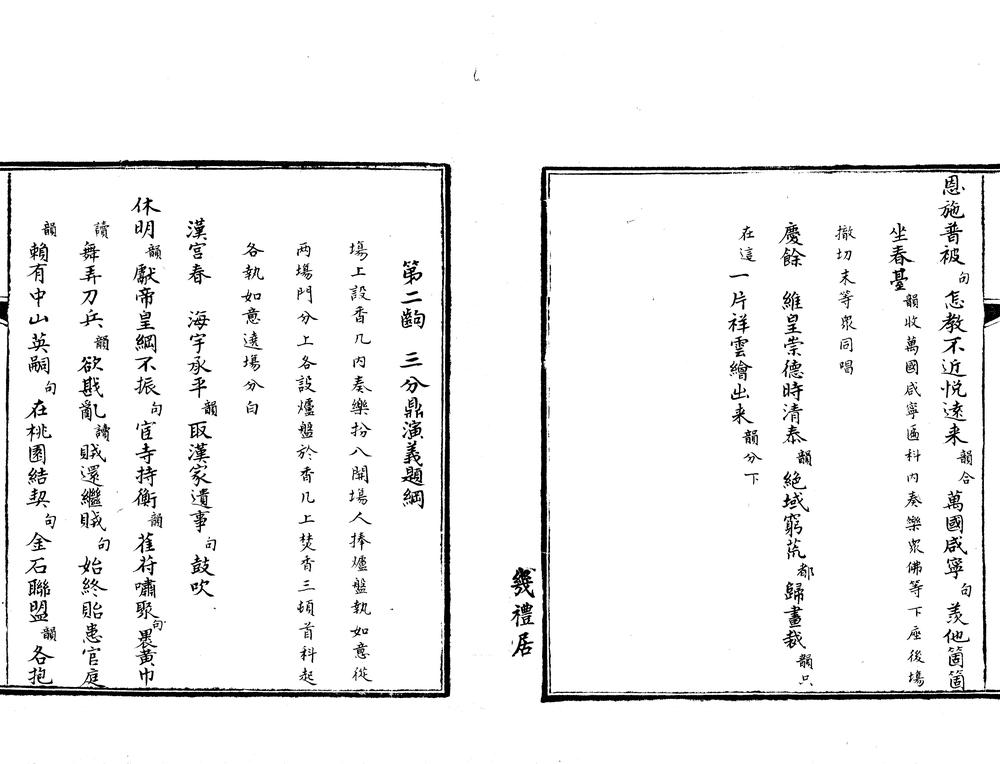 恩施普被句怎教不近悦遠来韻合萬國咸寧句羡他箇箇
坐春臺韻收萬國咸寧匾科内奏樂衆佛等下座後塲
撤切末等衆同唱
慶餘　維皇崇德時清泰韻絶域窮荒都歸畫裁韻只
在這一片祥雲繪出来韻分下
幾禮居
第二齣　三分鼎演義題綱
塲上設香几内奏樂扮八開塲人捧爐盤執如意從
两塲門分上各設爐盤於香几上焚香三頓首科起
各執如意遶塲分白
漢宫春　海宇承平韻取漢家遺事句鼓吹
休明韻獻帝皇綱不振句宦寺持衡韻萑苻嘯聚句褁黄巾
讀舞弄刀兵韻欲戡亂讀賊還繼賊句始終貽患官庭
韻賴有中山英嗣句在桃園結契句金石聯盟韻各抱